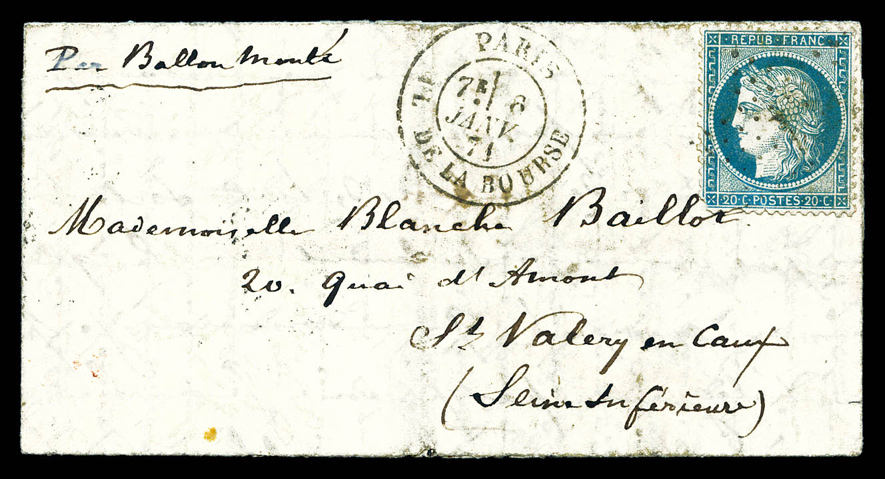 Par Ballon Monté
PARIS
PL. DE LA BOURSE
7E 6
JANV.
71
REPUB. FRANC.
20·C·POSTES·20·C
Mademoiselle Blanche Baillot
20. Quai d'Amont
St Valery en Caux
(Seine Inférieure)